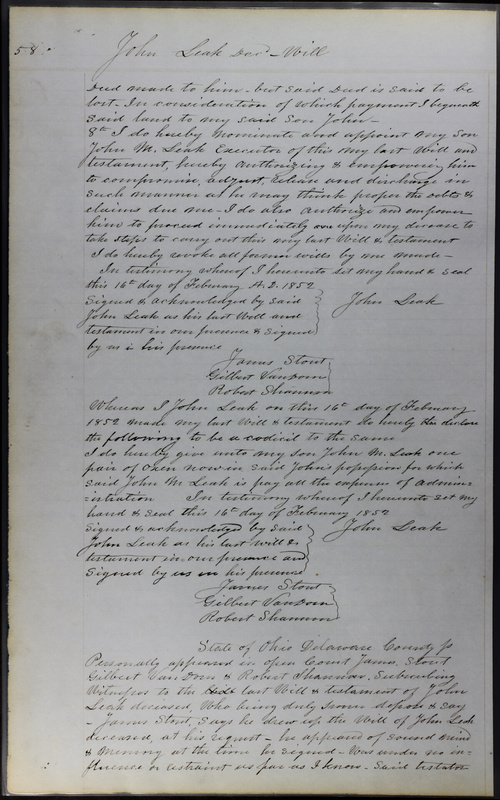 58
John Leak Decd - Will
Deed made to him - but said Deed is said to be
lost. In consideration of which payment I bequeath
said land to my said Son John -
8th I do hereby nominate and appoint my Son
John M. Leak Executor of this my last Will and
testament, hereby authorizing & empowering him
to compromise, adjust, release and discharge in
such manner as he may think proper the debts &
claims due me - I do also authorize and empower
him to proceed immediately upon my decease to
take steps to carry out this my last Will & testament
I do hereby revoke all former wills by me made -
In testimony whereof I hereunto set my hand & seal
this 16th day of February A.D. 1852
Signed & acknowledged by said
John Leak
John Leak as his last Will and
testament in our presence & signed
by us in his presence
James Stout
Gilbert VanDorn
Robert Shannon
Whereas I John Leak on this 16th day of February
1852 made my last Will & testament do hereby declare
the following to be a codicil to the same
I do hereby give unto my son John M. Leak one
pair of Oxen now in said John's possession for which
said John M. Leak is pay all the expenses of admin-
=istration In testimony whereof I hereunto set my
hand & seal this 16th day of February 1852
Signed & acknowledged by said
John Leak
John Leak as his last will &
testament in our presence and
signed by us in his presence.
James Stout
Gilbert VanDorn
Robert Shannon
State of Ohio Delaware County ss
Personally appeared in open Court James Stout
Gilbert VanDorn & Robert Shannon, subscribing
Witnesses to the last Will & testament of John
Leak deceased, Who being duly sworn depose & say
- James Stout, says he drew up the Will of John Leak
deceased, at his request - he appeared of sound mind
& memory at the time he signed - Was under no in-
fluence or restraint as far as I know - Said testator